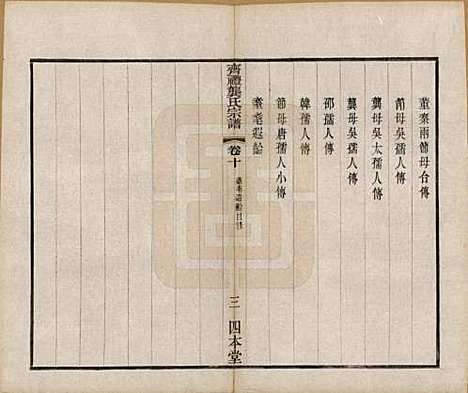 董秦兩節母合傳
節母吳孺人傳
龔母吳太孺人傳
龔母吳孺人傳
邵孺人傳
韓孺人傳
節母唐孺人小傳
耋耄遐齡
齊禮龔氏宗譜
卷十
三
四本堂